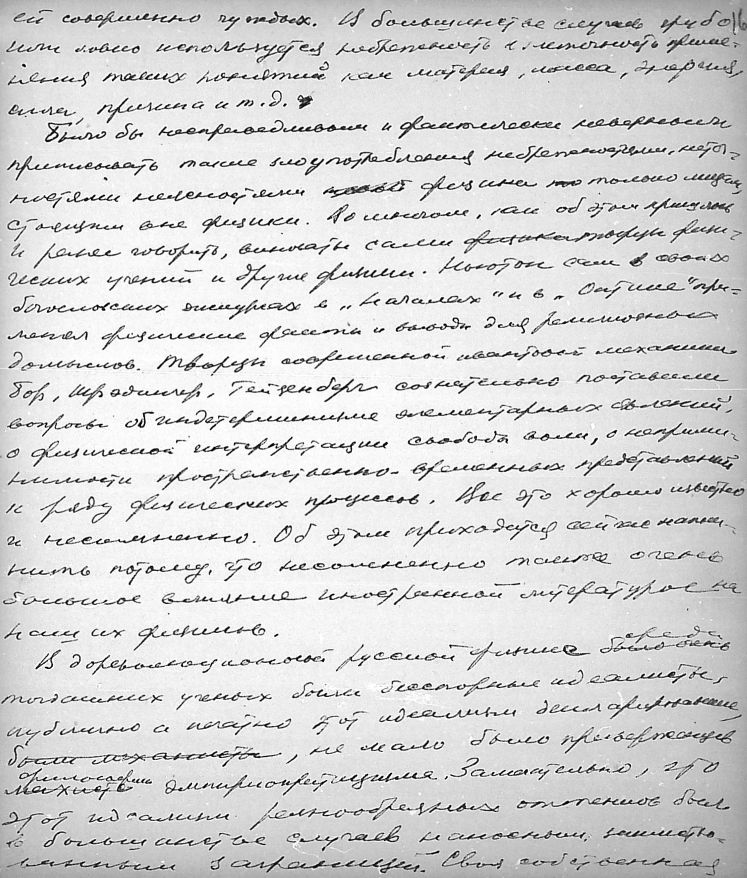 ей совершенно чуждых. В большинстве случаев грубо 16
или ловко используется небрежность и неточность приме-
нения таких понятий как материя, масса, энергия,
сила, причина и т.д.
Было бы несправедливым и фактически неверным
приписывать такие злоупотребления небрежностями, нето-
чностями неясностями физики только лицам
стоящим вне физики. Во многом, как об этом пришлось
и ранее говорить, виноваты сами творцы физи-
ческих учений и другие физики. Ньютон сам в своих
богословских экскурсах в „Началах" и в „Оптике" при-
менял физические факты и выводы для религиозных
домыслов. Творцы современной квантовой механики
Бор, Шредингер, Гейзенберг сознательно поставили
вопросы об индетерминизме элементарных явлений,
о физической интерпретации свободы воли, о неприме-
нимости пространственно-временных представлений
к ряду физических процессов. Все это хорошо известно
и несомненно. Об этом приходится сейчас напом-
нить потому, что несомненно также очень
большое влияние иностранной литературы на
наших физиков.
В дореволюционной русской физике среди
тогдашних ученых были бесспорные идеалисты,
публично и печатно этот идеализм декларировавшие,
не мало было приверженцев
философии эмпириокритицизма. Замечательно, что
этот идеализм разнообразных оттенков был
в большинстве случаев наносным, заимство-
ванным заграницей. Своя собственная